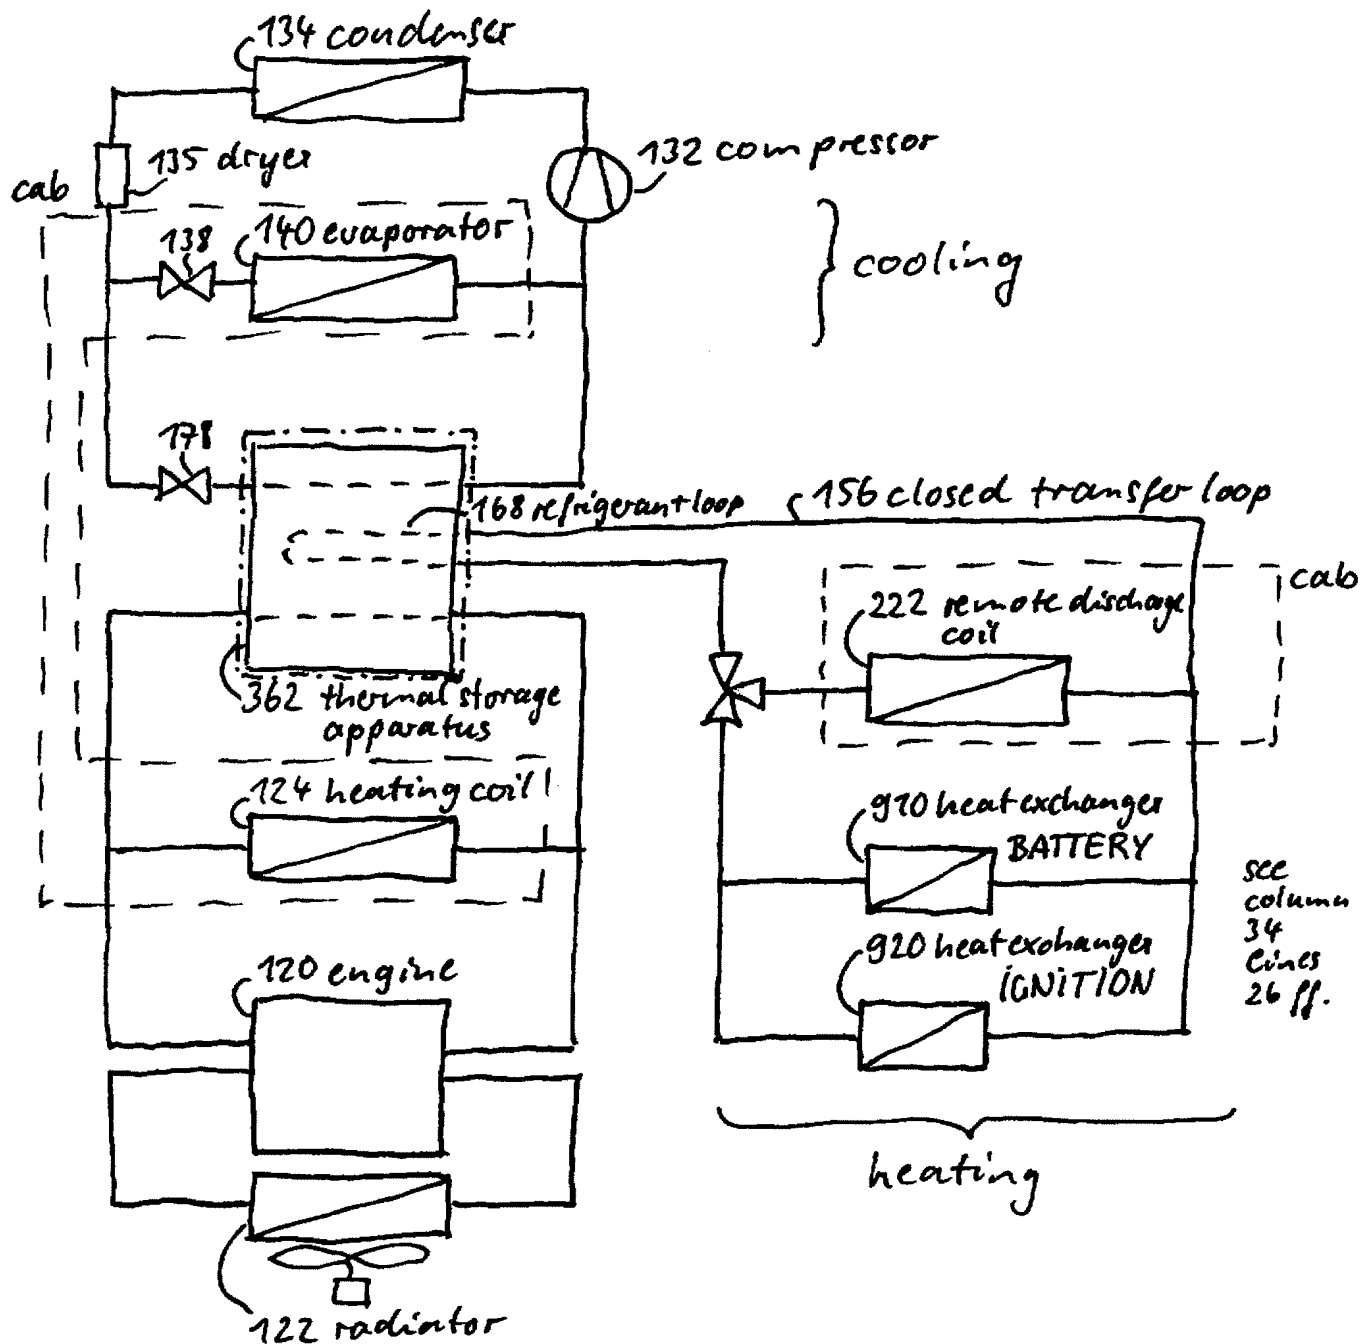 134 condenser
135 dryer
132 compressor
cab
138
140 evaporator
cooling
178
168 refrigerant loop
156 closed transfer loop
cab
222 remote discharge
coil
362 thermal storage
apparatus
124 heating coil
910 heat exchanger
BATTERY
see
column
34
lines
26 ff.
920 heat exchanger
IGNITION
120 engine
heating
122 radiator